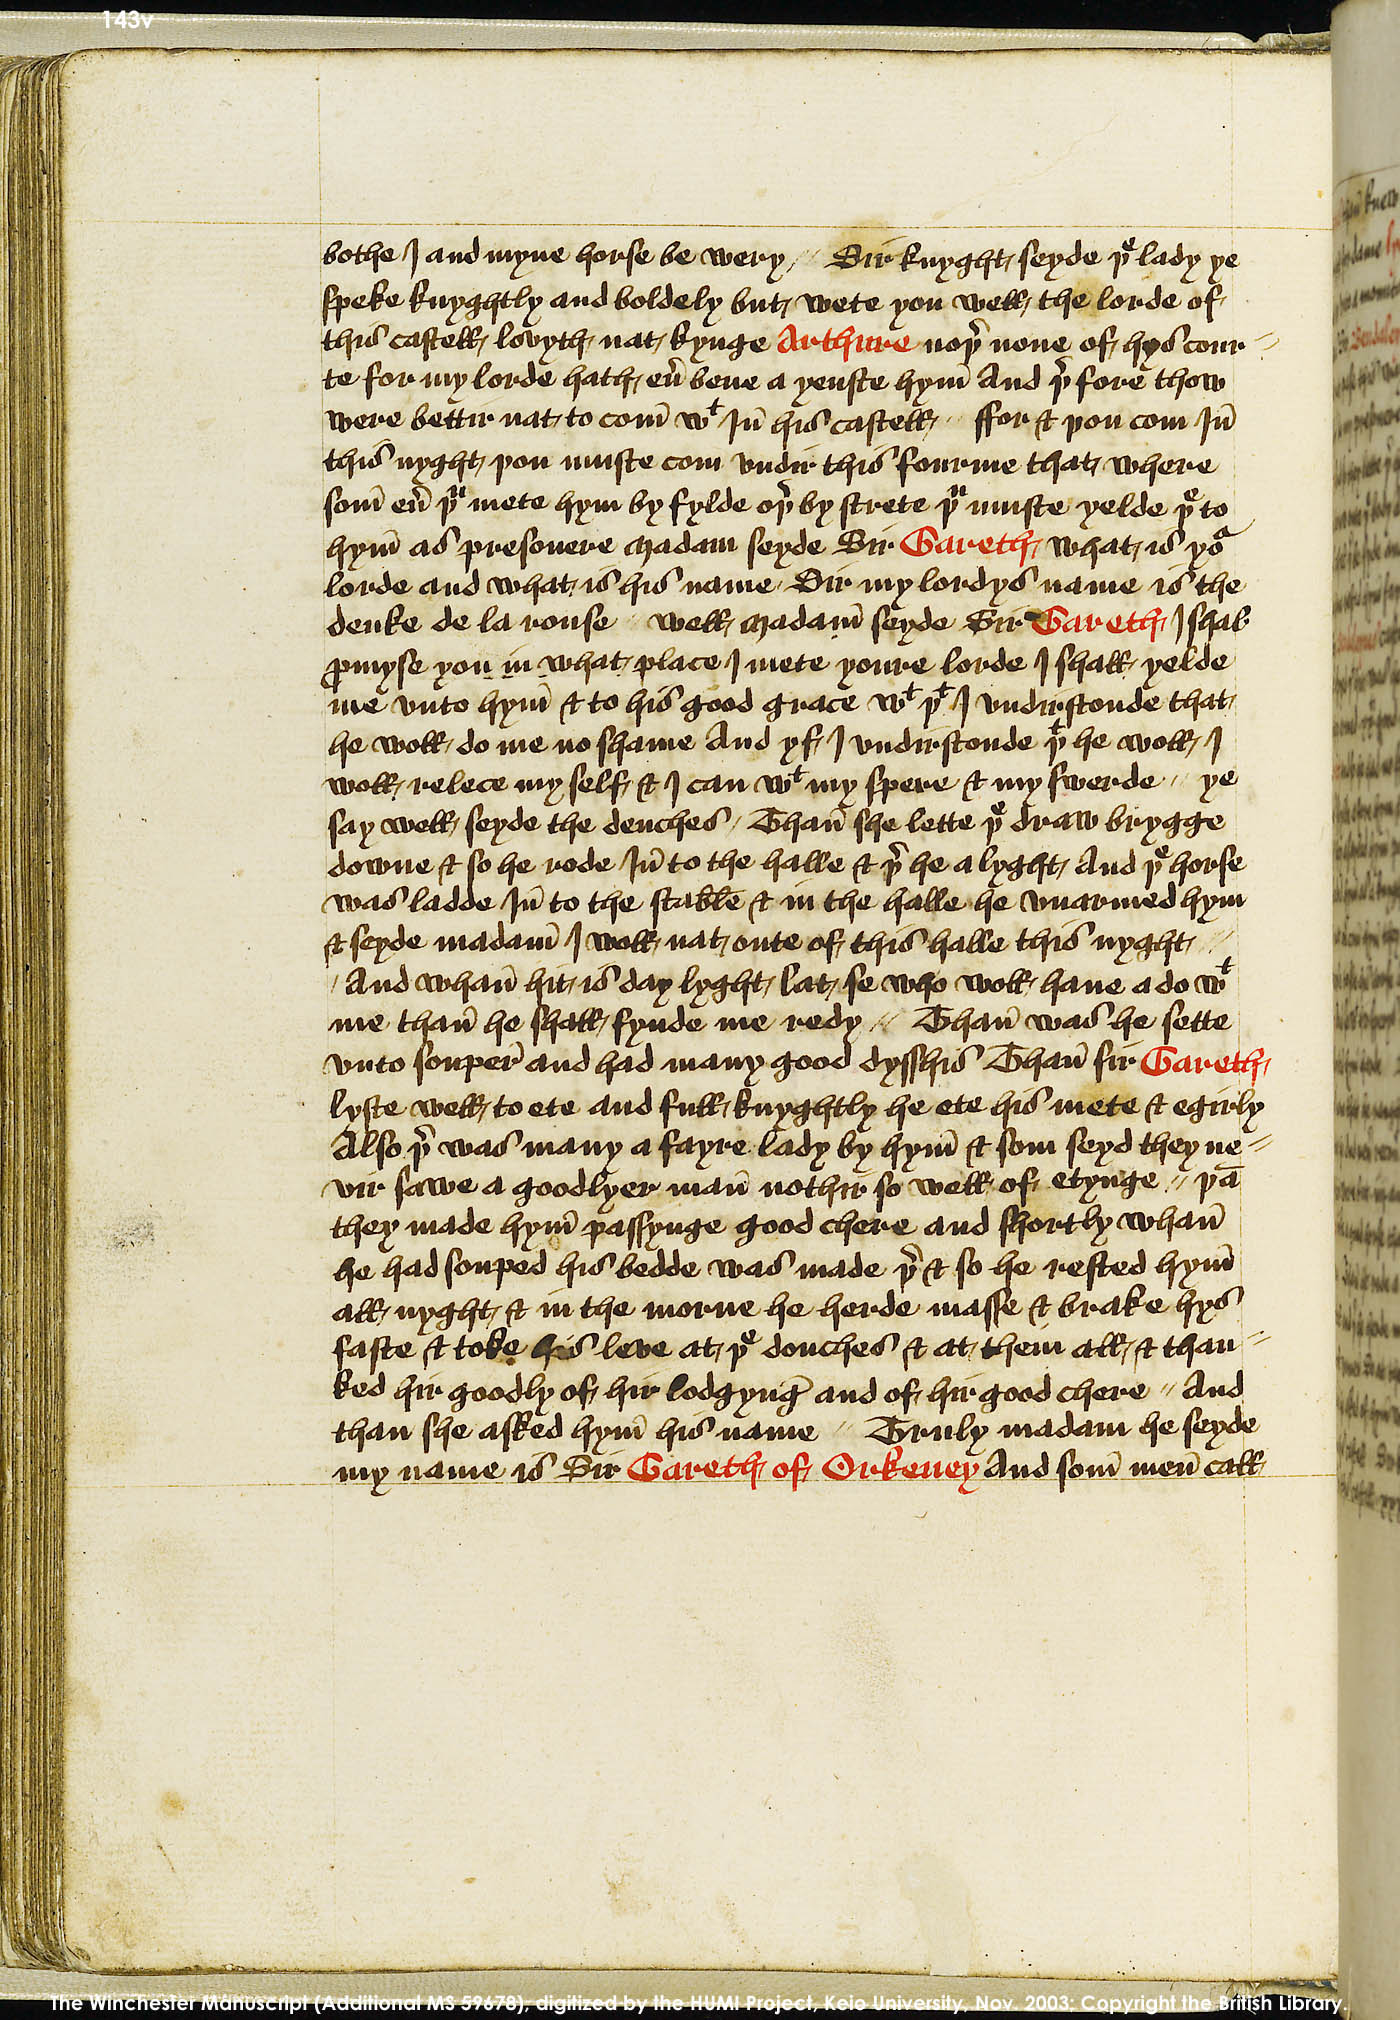 143v
bothe I and myne horse be wery // Sir knyght seyde þe lady ye
speke knyghtly and boldely but wete you well the lorde of
this castell lovyth nat kynge Arthure noþr none of hys cour//
te for my lorde hath eũ bene a yenste hym̄ And þr fore thow
were bettir nat to com̄ wt In̄ his castell // ffor & þou com In̄
this nyght þou muste com vndir this fourme that where
som̄ eũ þu mete hym by fylde oþr by strete þu muste yelde þe to
hym̄ as presonere Madam seyde Sir Gareth what is yor
lorde and what is his name Sir my lordys name is the
deuke de la rouse // well Madam̄ seyde Sir Gareth I shall
ꝓmyse you in what place I mete youre lorde I shall yelde
me vnto hym̄ & to his good grace wt þt I vndirstonde that
he woll do me no shame And yf I vndirstonde þt he woll I
woll relece my self & I can wt my spere & my swerde // ye
say well seyde the deuches / Than̄ she lette þe draw brygge
downe & so he rode In̄ to the halle & þr he a lyght And þe horse
was ladde In̄ to the stable & in the halle he vnarmed hym
& seyde madam̄ I woll nat oute of this halle this nyght //
/ And whan̄ hit is day lyght lat se who woll haue a do wt
me than̄ he shall fynde me redy // Than̄ was he sette
vnto souper and had many good dysshis Than̄ sir Gareth
lyste well to ete and full knyghtly he ete his mete & egirly
Also þr was many a fayre lady by hym̄ & som seyd they ne//
vir sawe a goodlyer man̄ nothir so well of etynge // þā
they made hym̄ passynge good chere and shortly whan̄
he had souped his bedde was made þr & so he rested hym̄
all nyght & in the morne he herde masse & brake hys
faste & toke his leve at þe douches & at them all & than//
ked hir goodly of hir lodgyng and of hir good chere // And
than she asked hym̄ his name // Truly madam he seyde
my name is Sir Gareth of Orkeney And som̄ men̄ call
The Winchester Manuscript (Additional MS 59678); digitized by the HUMI Project, Keio University, Nov. 2003; Copyright the British Library.